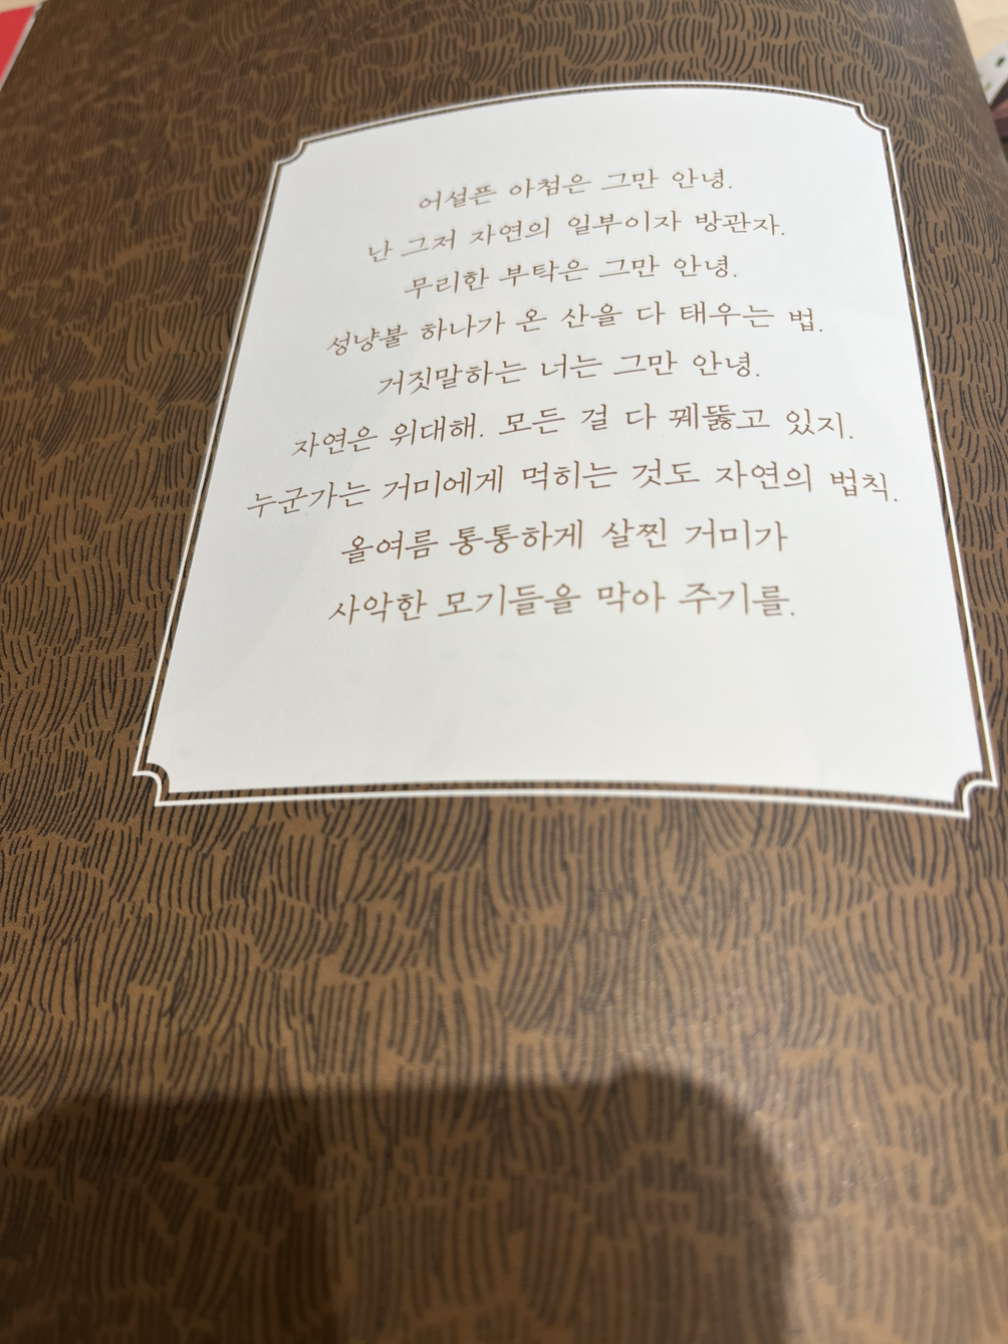 어설픈 아첨은 그만 안녕.
난 그저 자연의 일부이자 방관자.
무리한 부탁은 그만 안녕.
성냥불 하나가 온 산을 다 태우는 법.
거짓말하는 너는 그만 안녕.
자연은 위대해. 모든 걸 다 꿰뚫고 있지.
누군가는 거미에게 먹히는 것도 자연의 법칙.
올여름 통통하게 살찐 거미가
사악한 모기들을 막아 주기를.